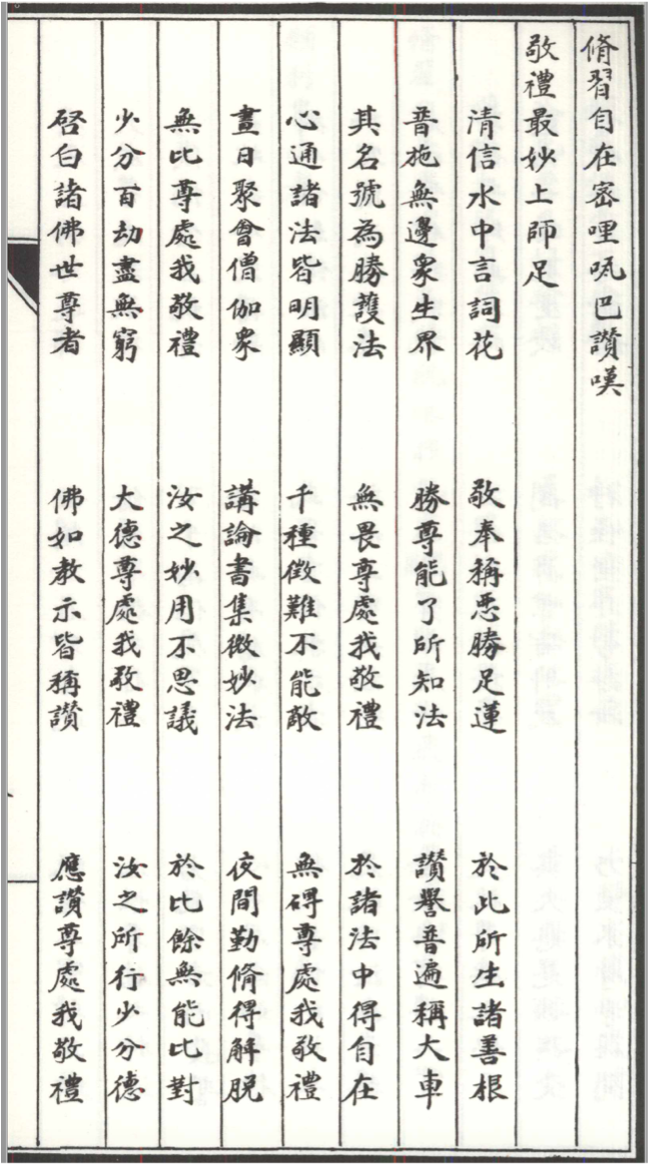 脩習自在密哩咓巴讚嘆
敬禮最妙上師足
清信水中言詞花　敬奉稱悉勝足蓮　於此所生諸善根
普施無邊衆生界　勝尊能了所知法　讚譽普遍稱大車
其名號為勝護法　無畏尊處我敬禮　於諸法中得自在
心通諸法皆明顯　千種徵難不能敵　無碍尊處我敬禮
晝日聚會僧伽衆　講論書集微妙法　夜間勤脩得解脫
無比尊處我敬禮　汝之妙用不思議　於比餘無能比對
少分百劫盡無窮　大德尊處我敬禮　汝之所行少分德
啓白諸佛世尊者　佛如教示皆稱讚　應讚尊處我敬禮